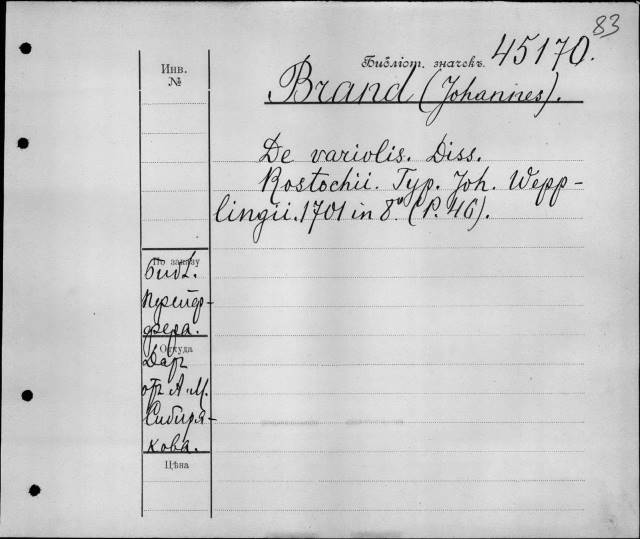 83
Библіот. значекъ. 45170.
Инв.
№
Brand (Johannes).
De variolis. Diss.
Rostochii. Typ. Joh. Wepp-
lingii. 1701 in 8º. (P. 46).
По заказу
Библ.
Пфейф-
фера.
Откуда
Даръ
отъ А. М.
Сибиря-
кова.
Цѣна